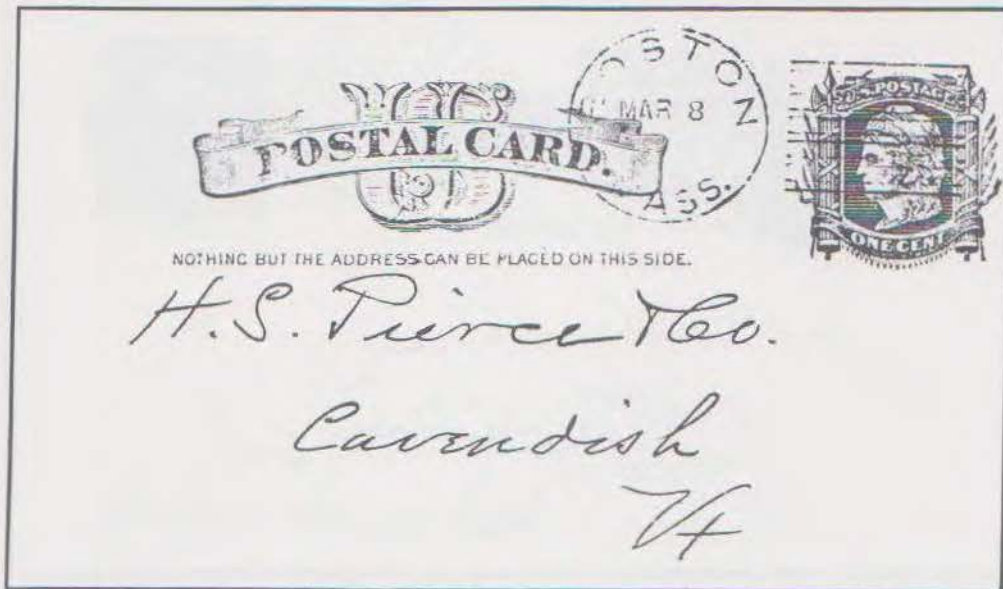 US
POSTAL CARD.
OSTON
MAR 8
ASS.
U.S. POSTAGE
ONE CENT
NOTHING BUT THE ADDRESS CAN BE PLACED ON THIS SIDE.
H. S. Pierce & Co.
Cavendish
Vt